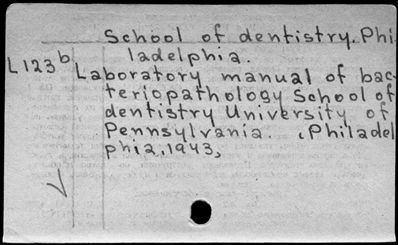 School of dentistry. Phi-
ladelphia.
L123b
Laboratory manual of bac-
teriopathology School of
dentistry University of
Pennsylvania. (Philadel
phia, 1943,